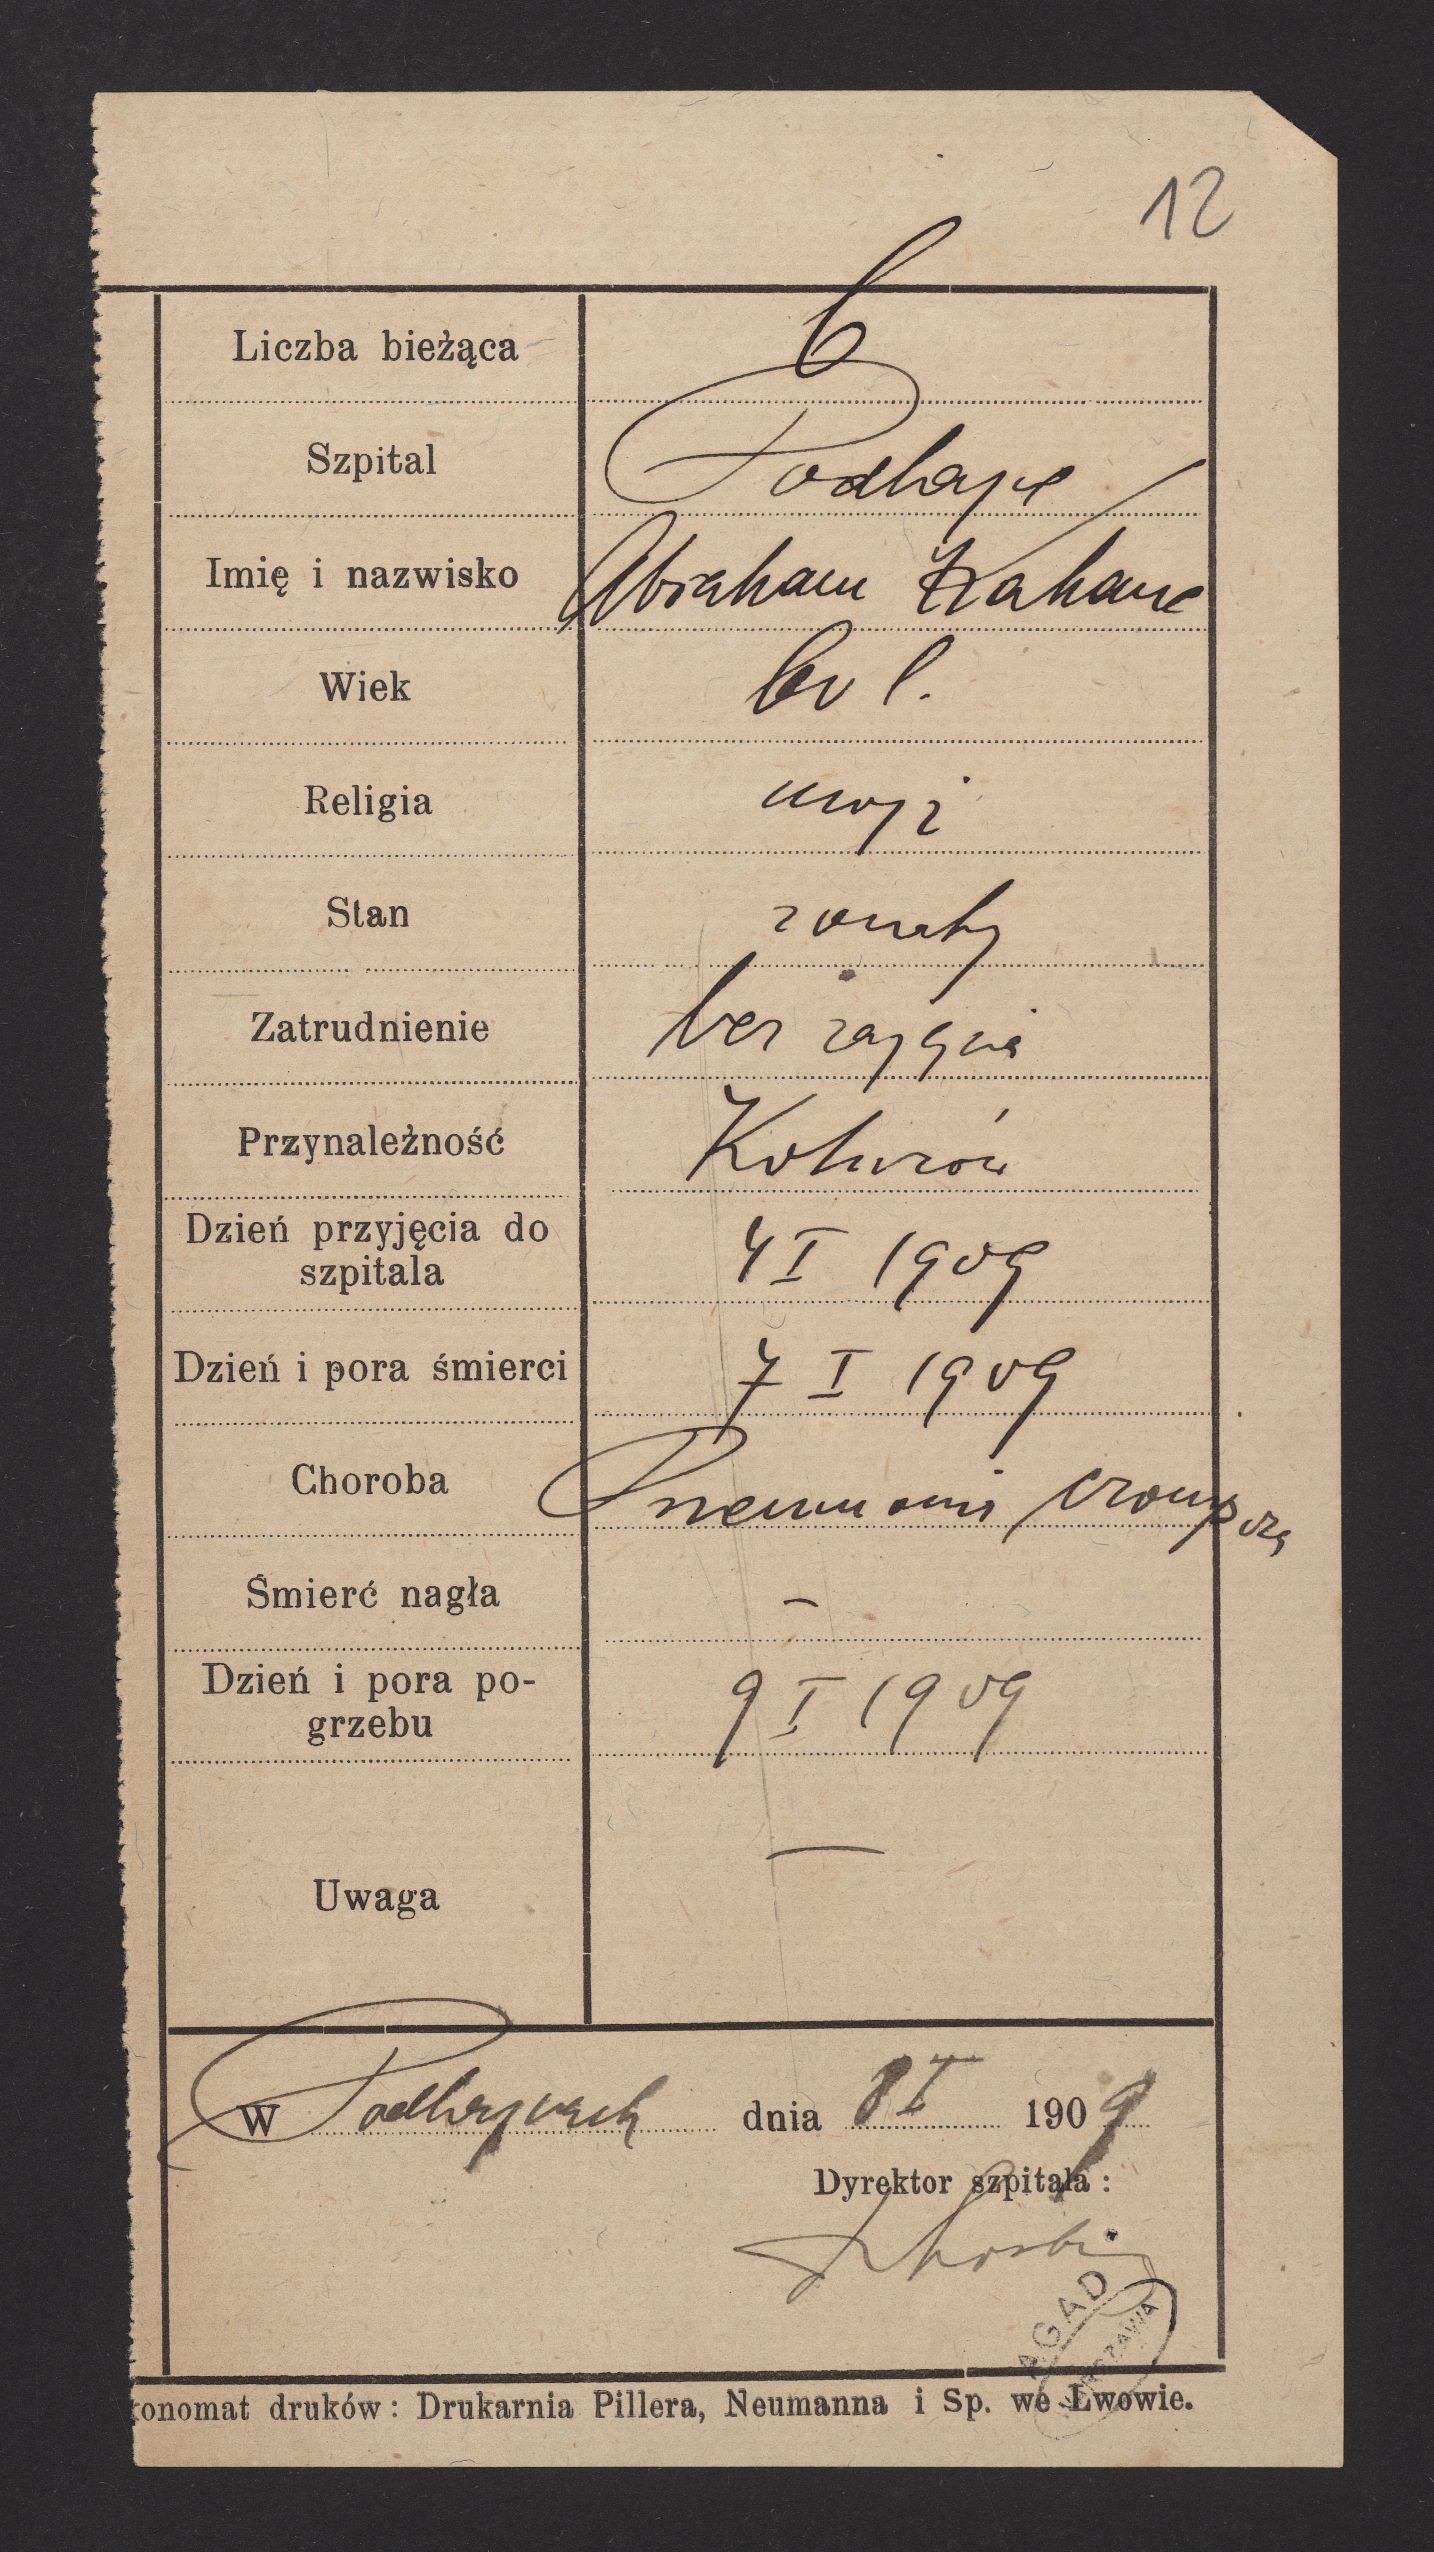 12
Liczba bieżąca 6
Szpital Podhajce
Imię i nazwisko Abraham Kahane
Wiek 60 l.
Religia mojż
Stan żonaty
Zatrudnienie bez zajęcia
Przynależność
Dzień przyjęcia do
szpitala 4 I 1909
Dzień i pora śmierci 7 I 1909
Choroba Pneumonia crouposa
Śmierć nagła –
Dzień i pora po-
grzebu 9 I 1909
Uwaga —
W Podhajcach dnia 8 I 1909
Dyrektor szpitala:
AGAD
WARSZAWA
konomat druków: Drukarnia Pillera, Neumanna i Sp. we Lwowie.